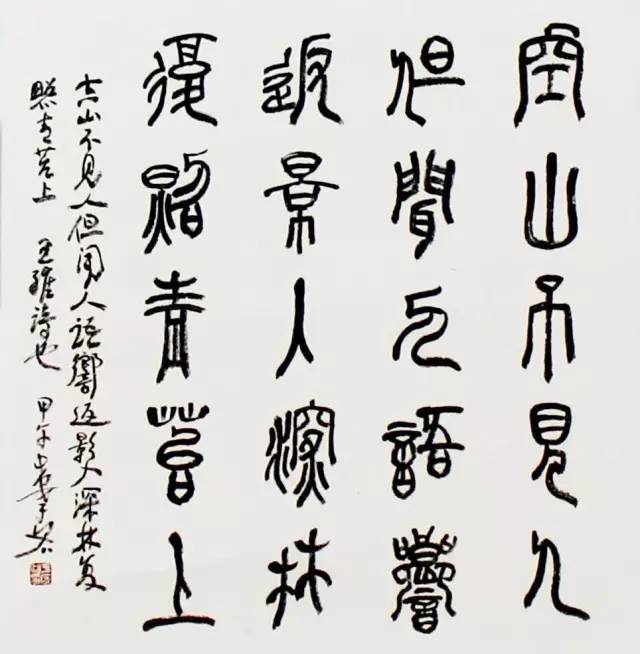 空山不見人
但聞人語響
返景入深林
復照青苔上
空山不見人但闻人語響返影入深林复
照青苔上 王維詩也 甲午